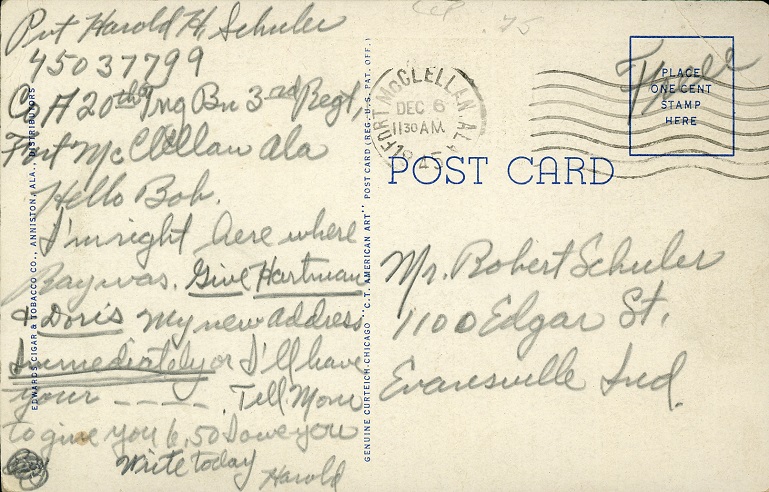 Pvt Harold H. Schuler
45037799
Co A 20th Tng Bn 3rd Regt,
Fort McClellan Ala
Hello Bob.
I'm right here where
Ray was. Give Hartman
& Doris my new address
Immediately or I'll have
your _ _ _ _. Tell Mom
to give you 6.50 I owe you
Write today
Harold
EDWARDS CIGAR & TOBACCO CO., ANNISTON, ALA., DISTRIBUTORS
GENUINE CURTEICH-CHICAGO "C.T. AMERICAN ART" POST CARD (REG. U.S. PAT. OFF.)
FORT McCLELLAN, ALA
DEC 6
11 30 AM
1945
Free
PLACE
ONE CENT
STAMP
HERE
POST CARD
Mr. Robert Schuler
1100 Edgar St.
Evansville Ind.